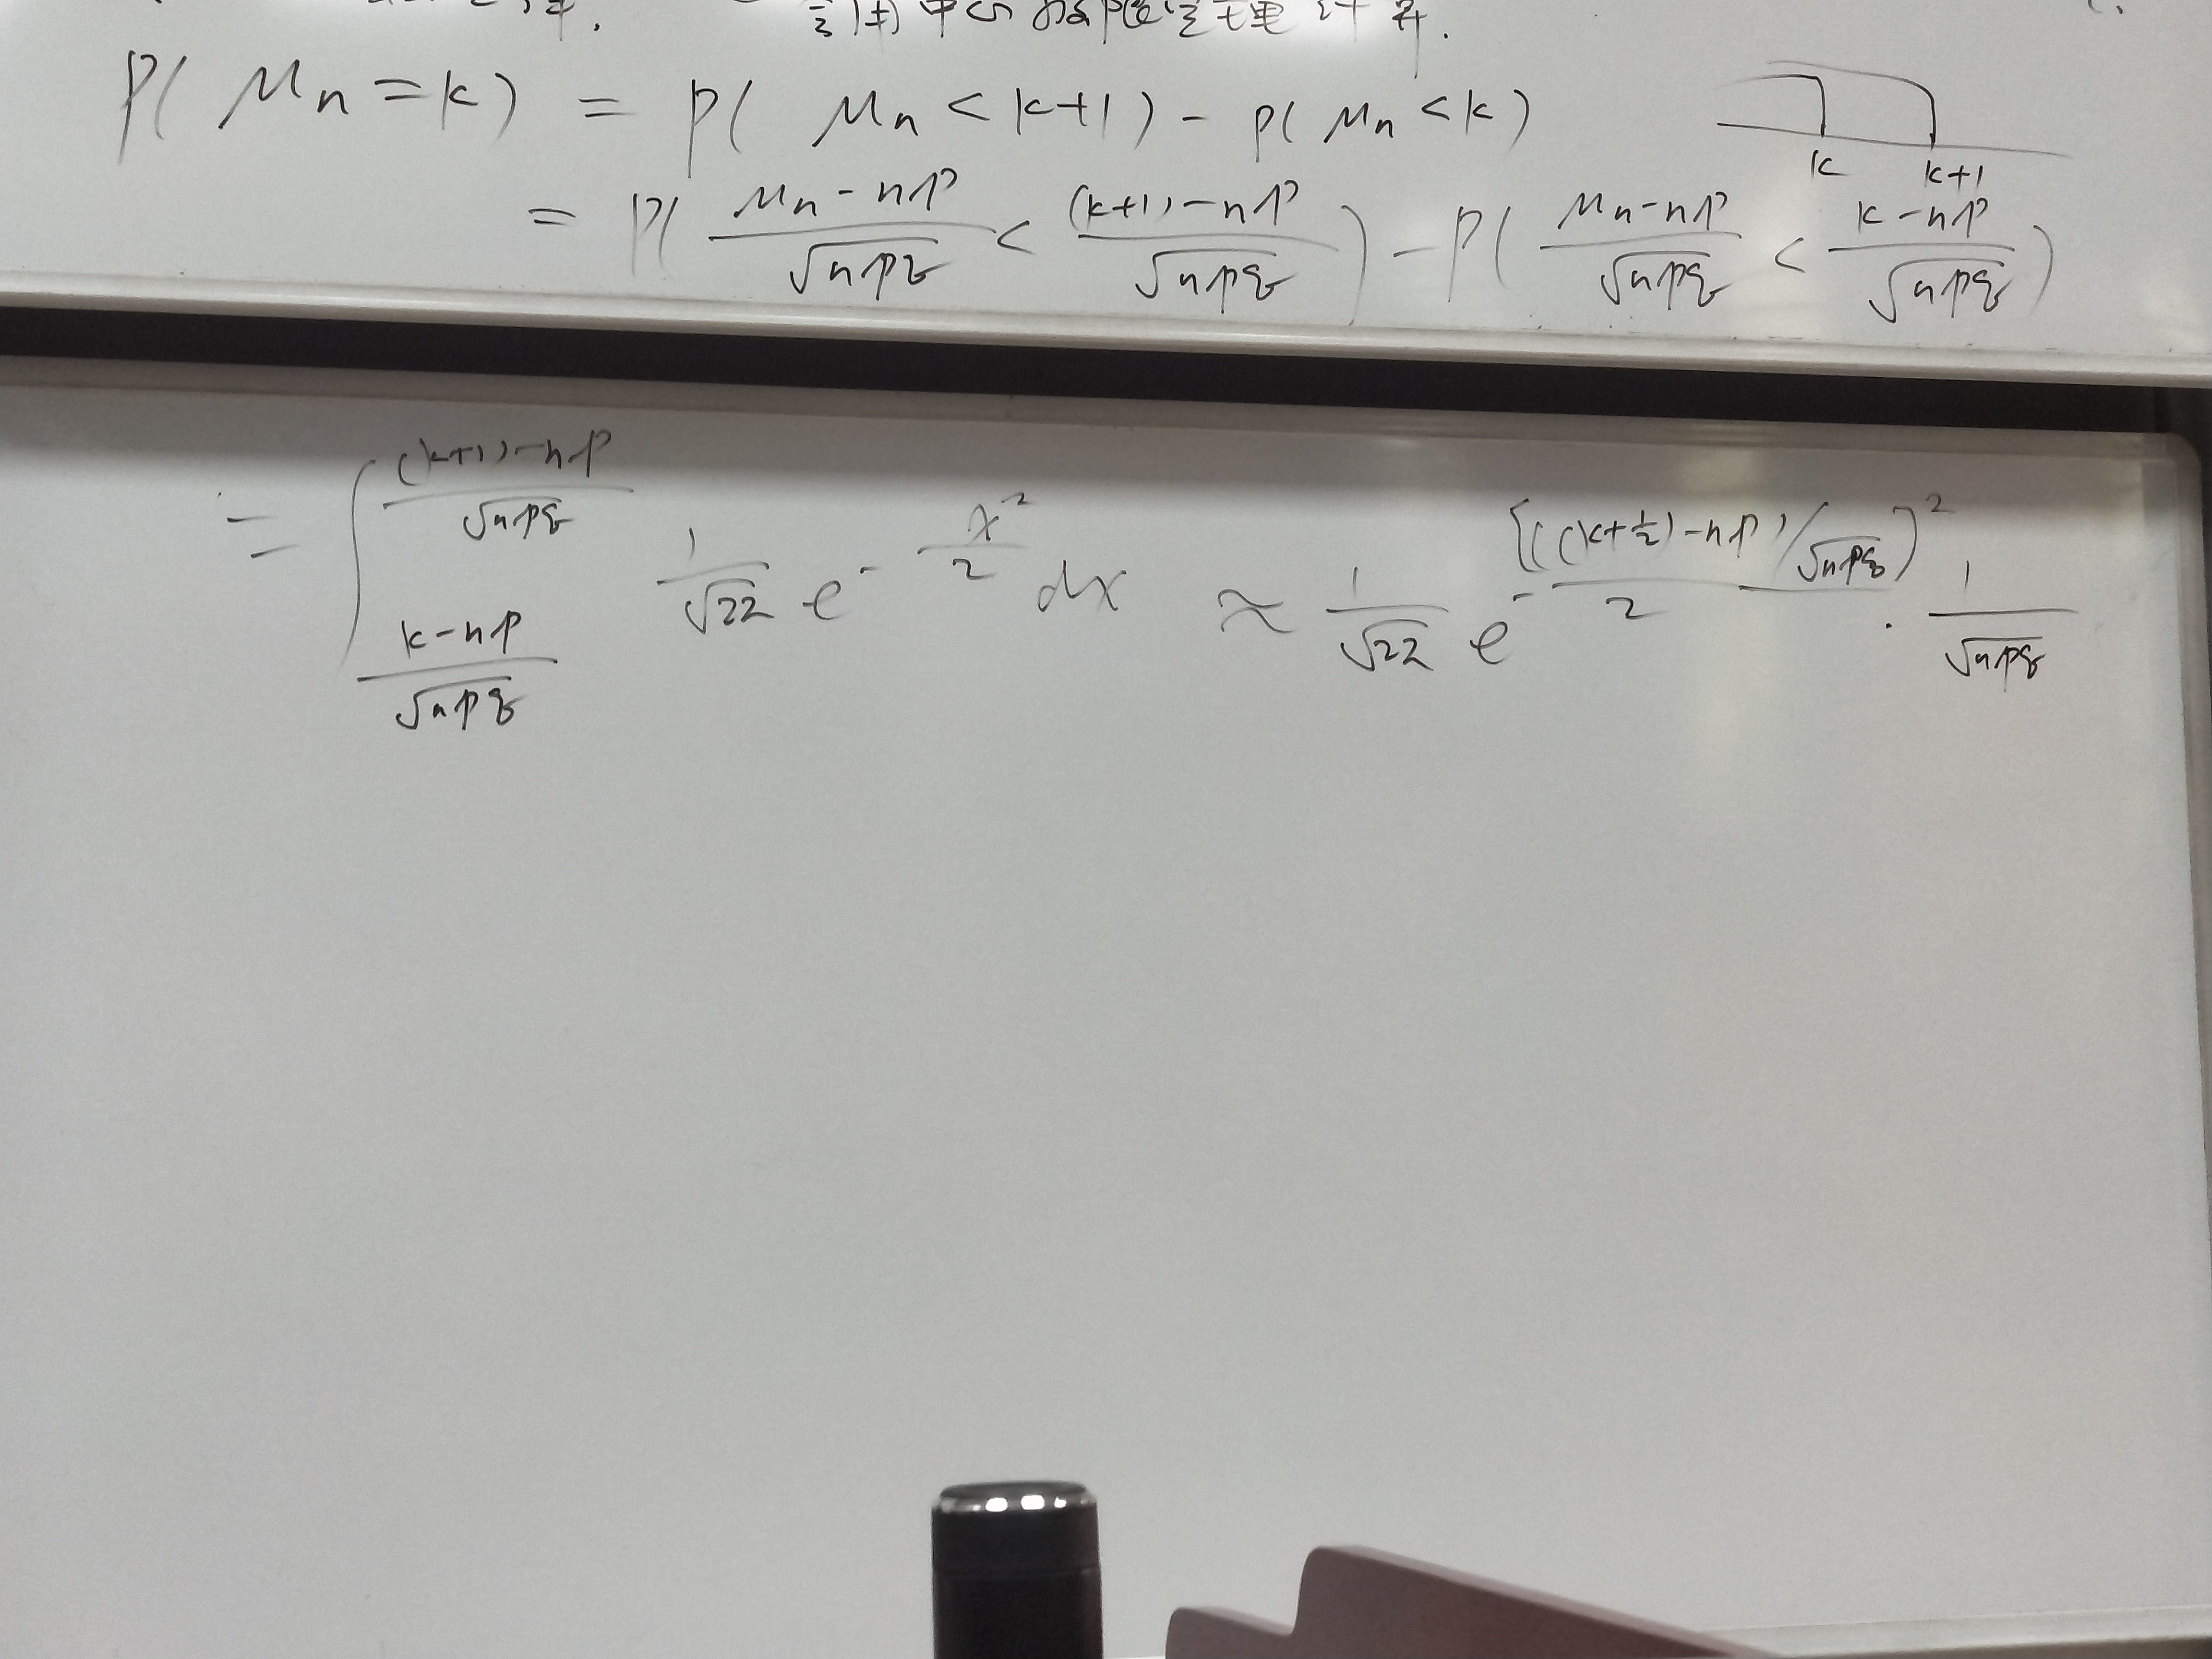 引用中心极限定理计算.
P( μn = k ) = P( μn < k+1 ) - P( μn < k )
k k+1
= P( (μn - np)/√npq < ((k+1) - np)/√npq ) - P( (μn - np)/√npq < (k - np)/√npq )
= ∫_{(k - np)/√npq}^{((k+1) - np)/√npq} 1/√2π e^{- x²/2} dx ≈ 1/√2π e^{- [((k+½) - np)/√npq)²/2} · 1/√npq